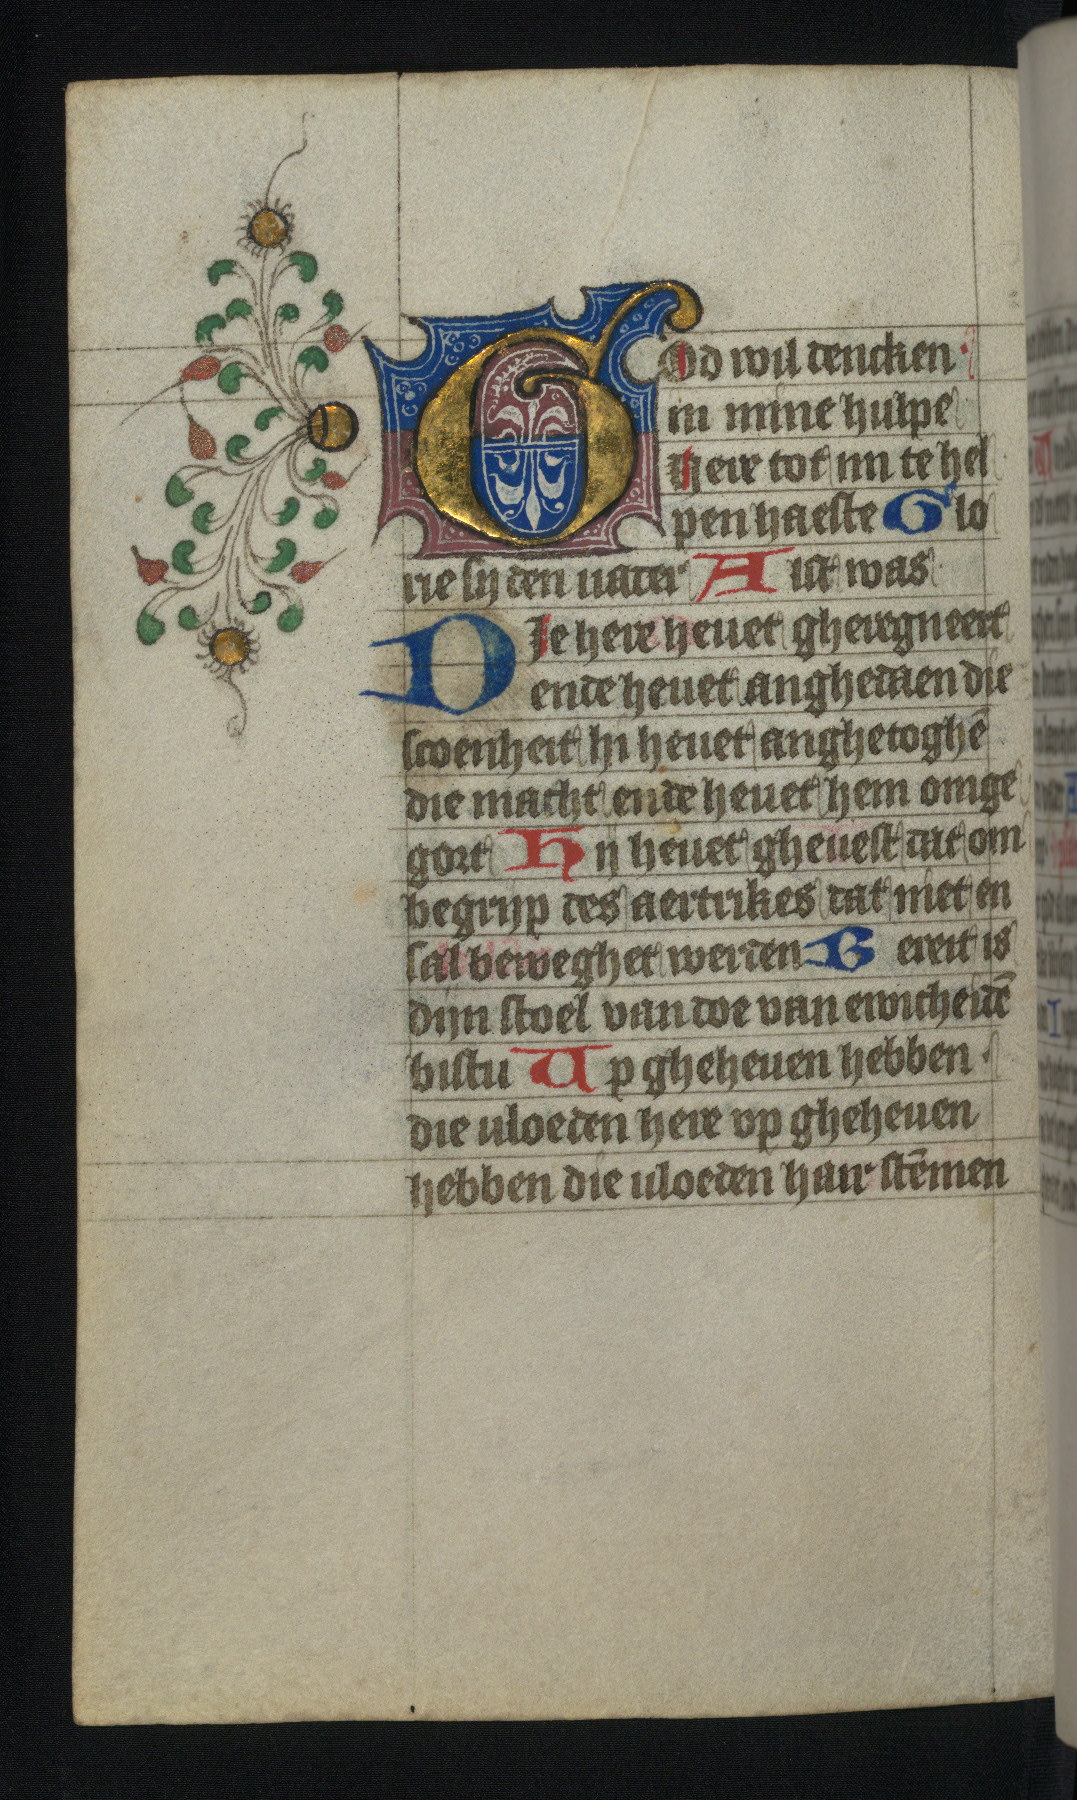 God wil dencken
in mine hulpe
Here tot mi te hel
pen haeste Glo
rie sij den uader Alst was
Die here heuet gheregneert
ende heuet anghedaen die
scoenheit hi heuet anghetoghē
die macht ende heuet hem omge
gort Hij heuet gheuest dat om
begrijp des aertrikes dat niet en
sal beweghet werden Bereit is
dijn stoel van doe van ewicheidē
bistu Up gheheuen hebben
die uloeden here vp gheheuen
hebben die uloeden hair stēmen